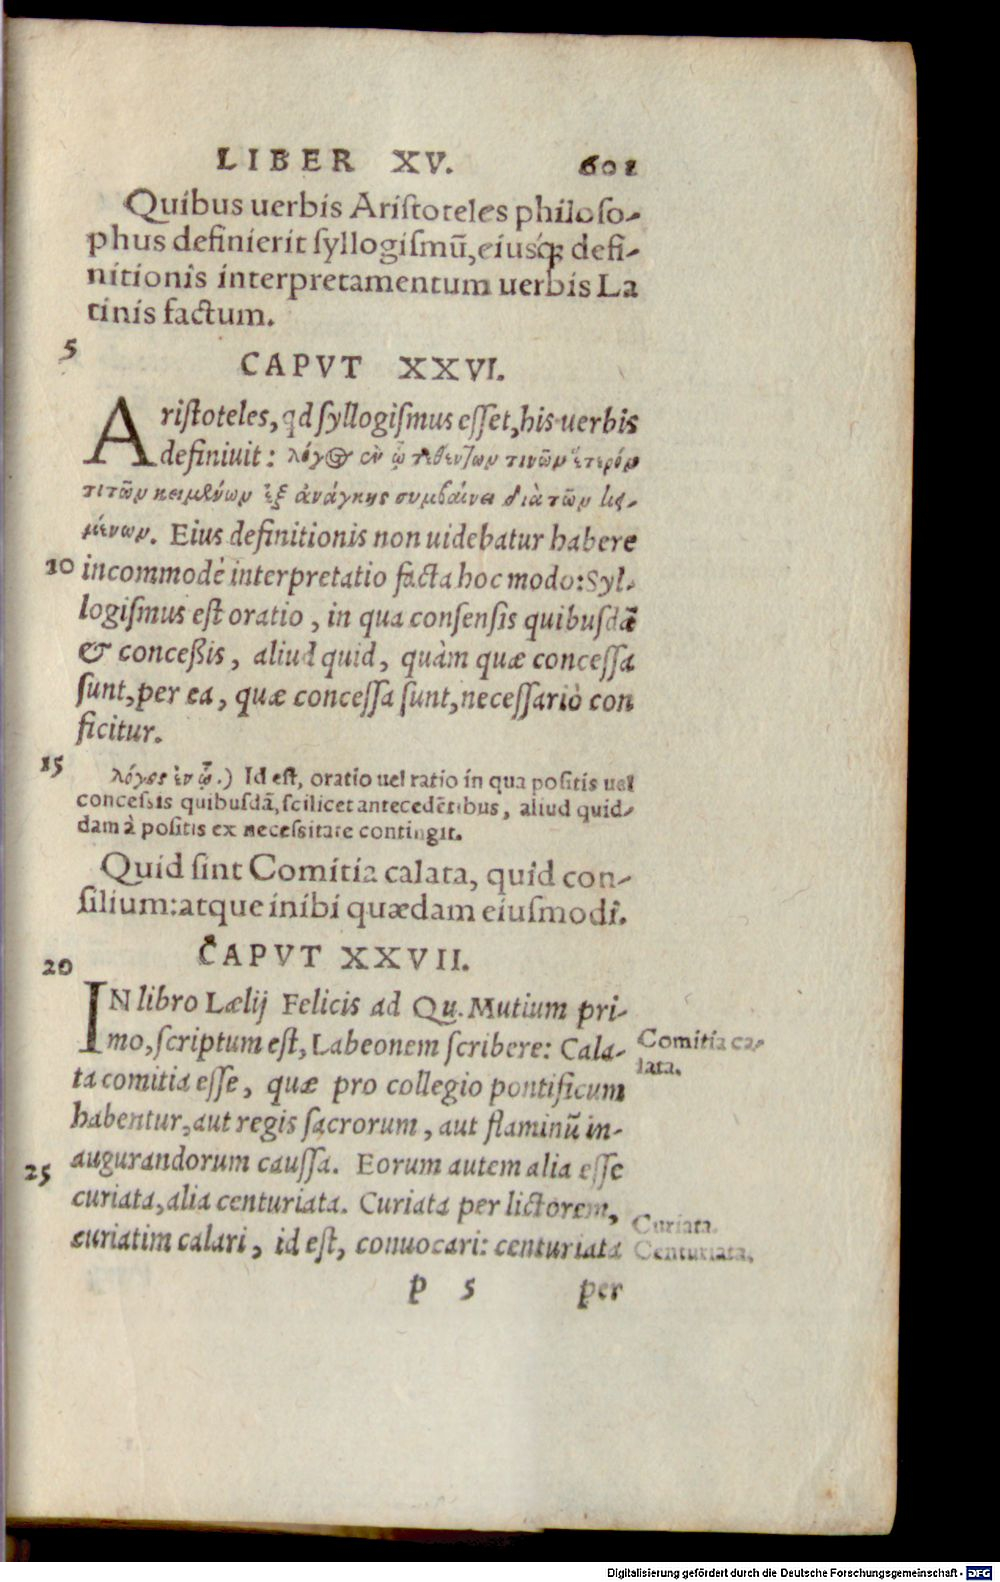 LIBER XV. 601
Quibus uerbis Ariſtoteles philoſo-
phus definierit ſyllogiſmū, eiusq́ꝫ defi-
nitionis interpretamentum uerbis La
tinis factum.
5
CAPVT XXVI.
Ariſtoteles, qd ſyllogiſmus eſſet, his uerbis
definiuit: λόγος ἐν ᾧ τεθέντων τινῶν ἕτερόν
τι τῶν κειμένων ἐξ ἀνάγκης συμβαίνει διὰ τῶν κει-
μένων. Eius definitionis non uidebatur habere
10 incommodè interpretatio facta hoc modo: Syl-
logiſmus eſt oratio, in qua conſenſis quibuſdā
& conceßis, aliud quid, quàm quæ conceſſa
ſunt, per ea, quæ conceſſa ſunt, neceſſariò con
ficitur.
15
λόγος ἐν ᾧ.) Id eſt, oratio uel ratio in qua poſitis uel
conceſsis quibuſdā, ſcilicet antecedētibus, aliud quid-
dam à poſitis ex neceſsitate contingit.
Quid ſint Comitia calata, quid con-
ſilium: atque inibi quædam eiuſmodi.
20
CAPVT XXVII.
IN libro Lælij Felicis ad Qu. Mutium pri-
mo, ſcriptum eſt, Labeonem ſcribere: Cala-
ta comitia eſſe, quæ pro collegio pontificum
habentur, aut regis ſacrorum, aut flaminū in-
25 augurandorum cauſſa. Eorum autem alia eſſe
curiata, alia centuriata. Curiata per lictorem,
curiatim calari, id eſt, conuocari: centuriata
Comitia ca-
lata.
Curiata.
Centuriata.
p 5 per
Digitalisierung gefördert durch die Deutsche Forschungsgemeinschaft - DFG